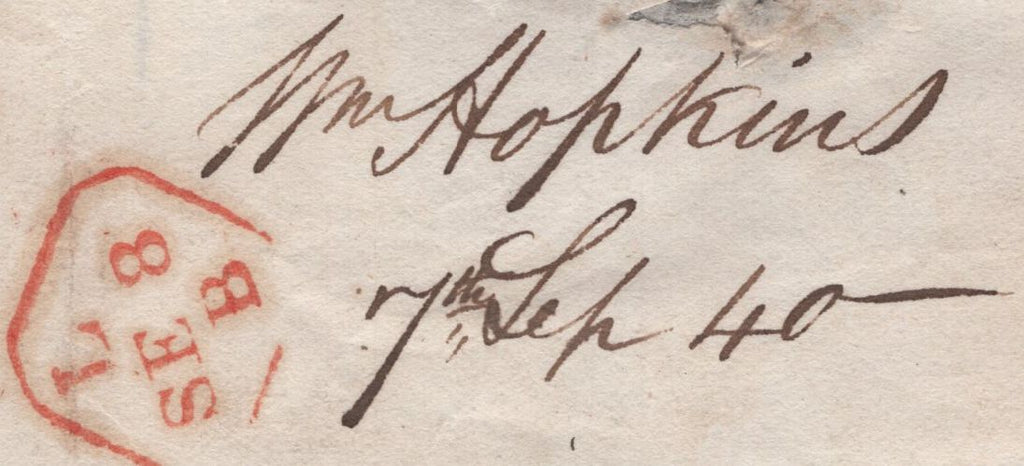 Wm Hopkins
7th Sep 40
L
SE 8
B